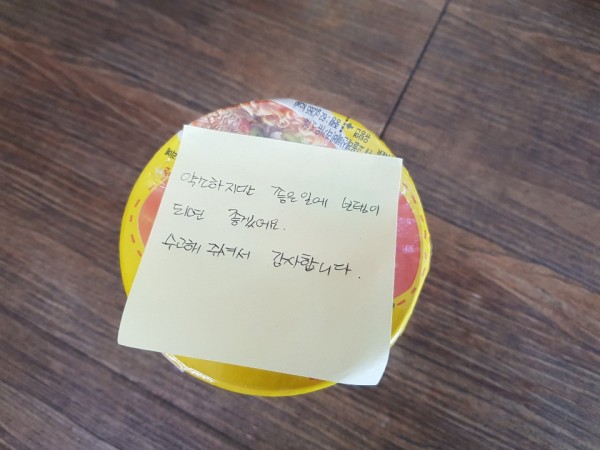 약소하지만 좋은일에 보탬이
되면 좋겠어요.
수고해 주셔서 감사합니다.